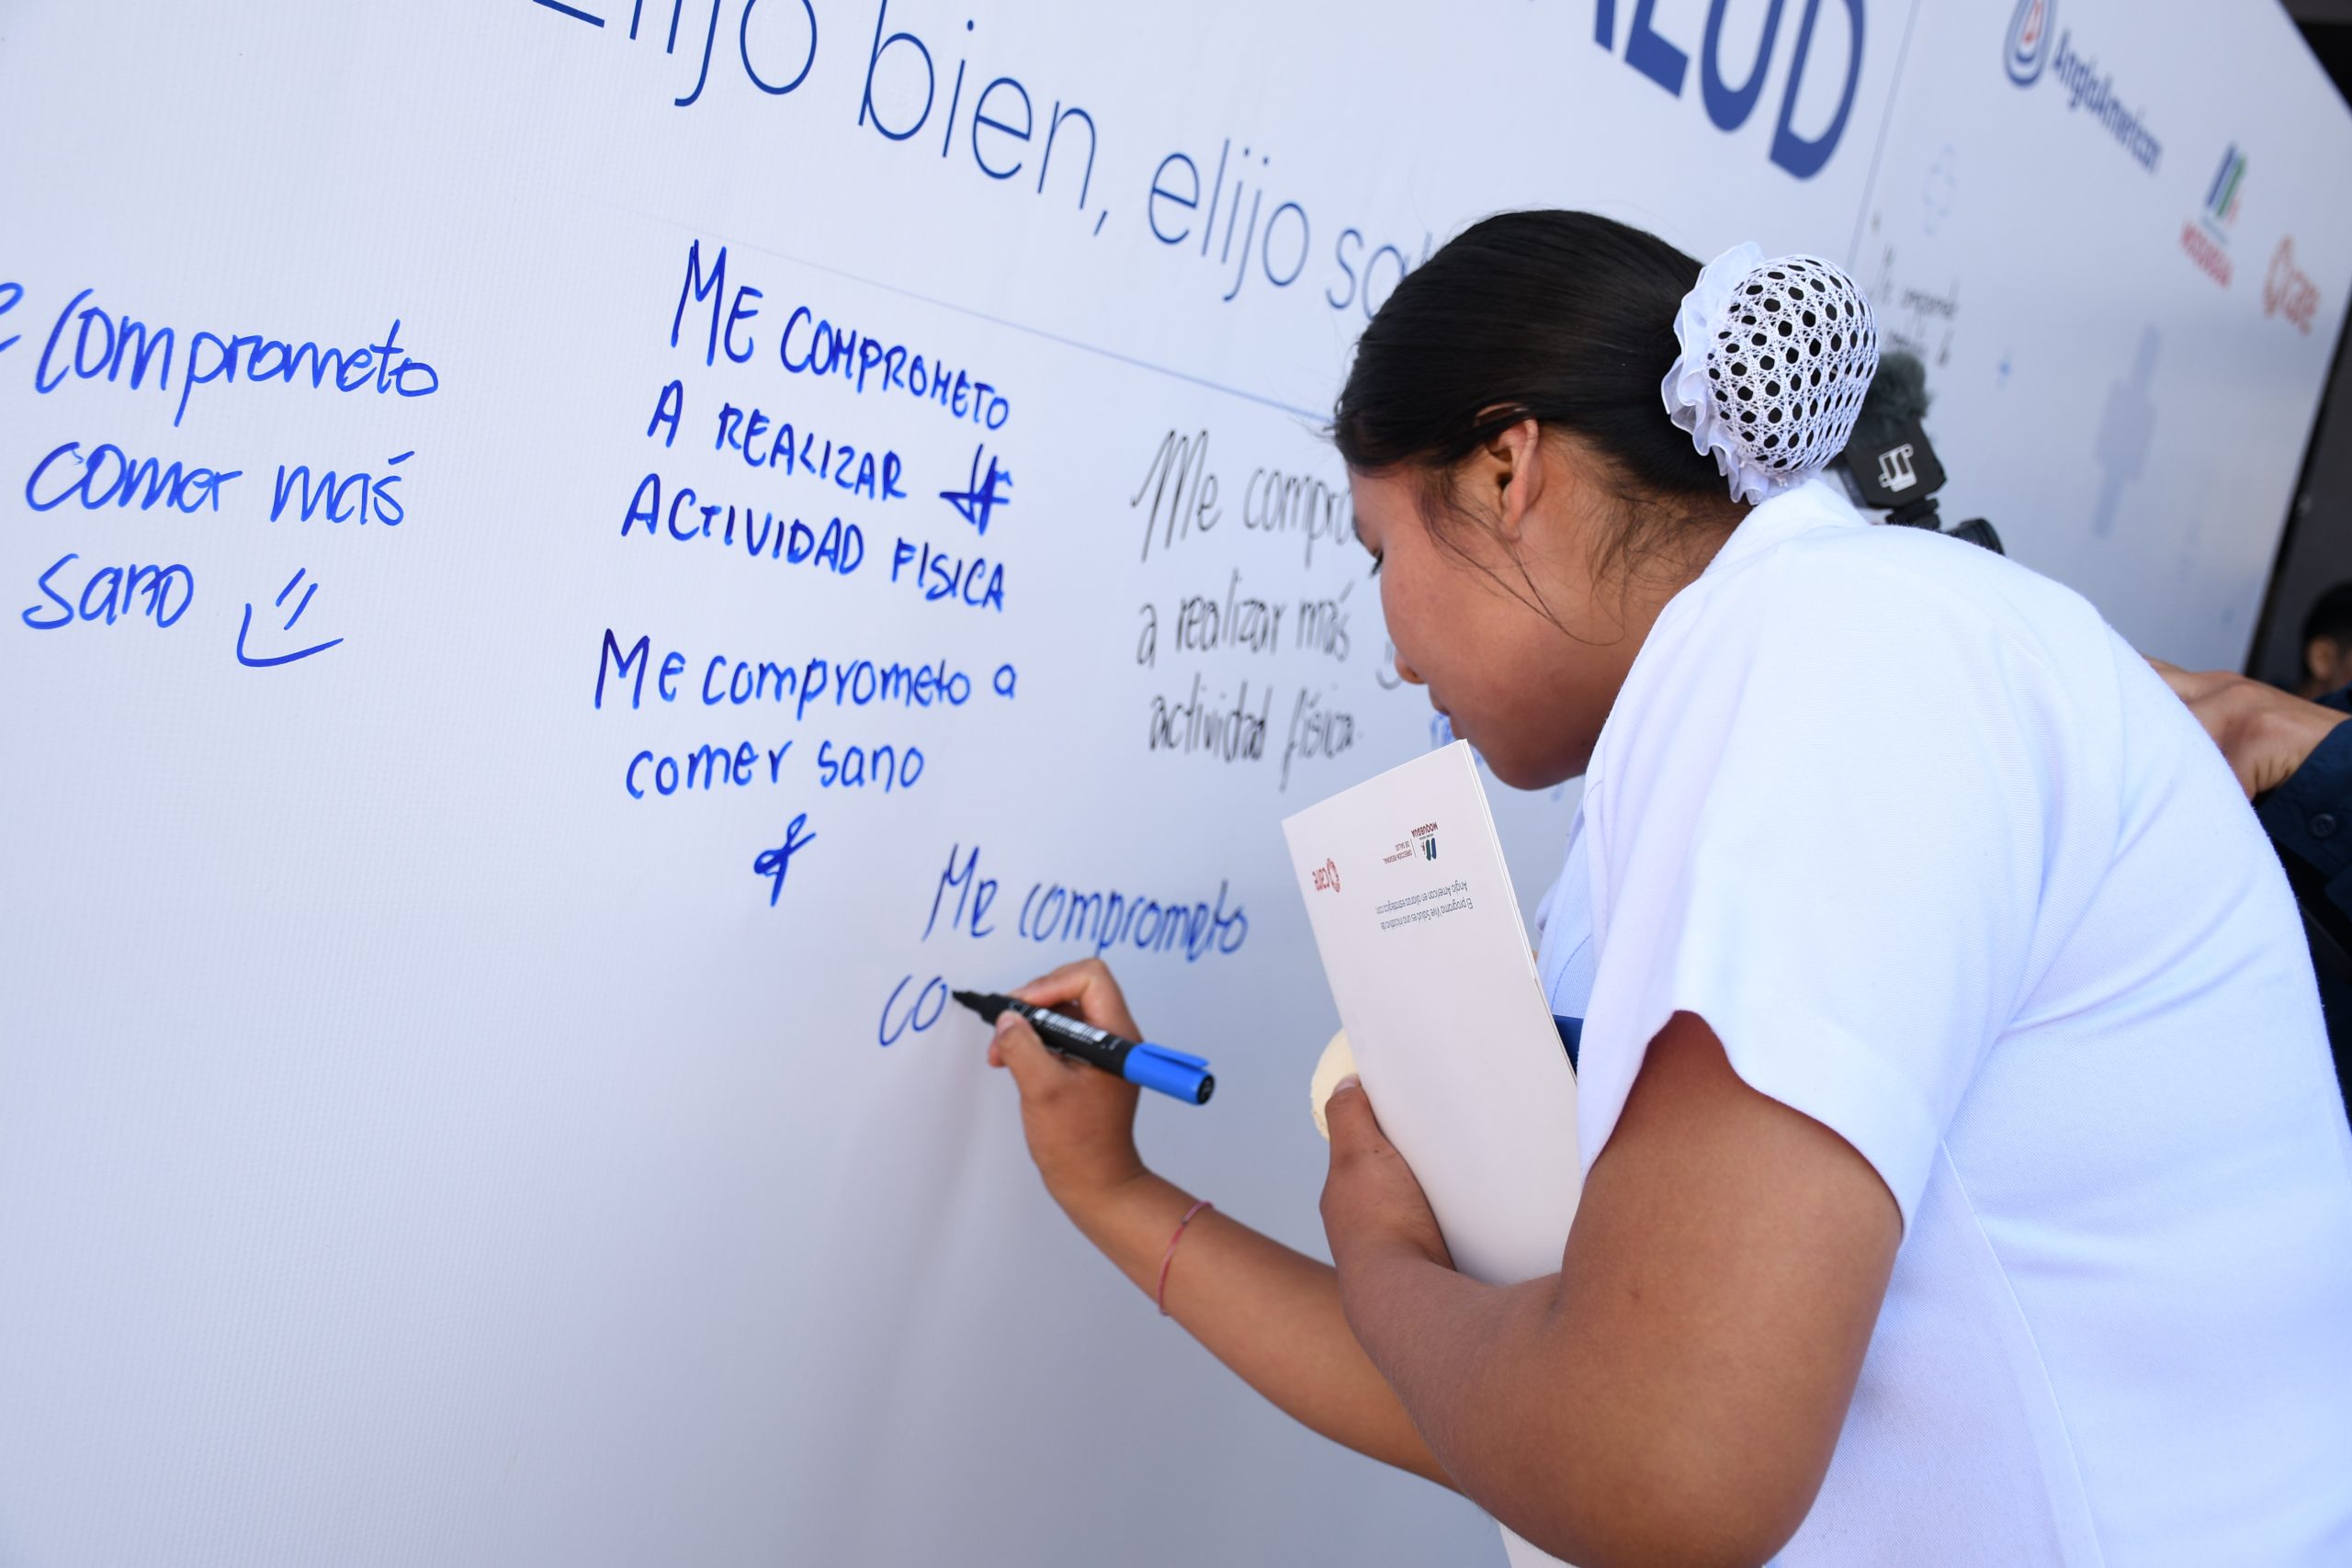 Elijo bien, elijo
AngloAmerican
MOQUEGUA
care
comprometo
comer más
sano
ME COMPROMETO
A REALIZAR
ACTIVIDAD FISICA
Me comprometo a
comer sano
Me
a realizar más
actividad física.
Me comprometo
co
El programa Vive Salud es una iniciativa de
Anglo American en alianza estratégica con:
DIRECCIÓN REGIONAL
DE SALUD
MOQUEGUA
care